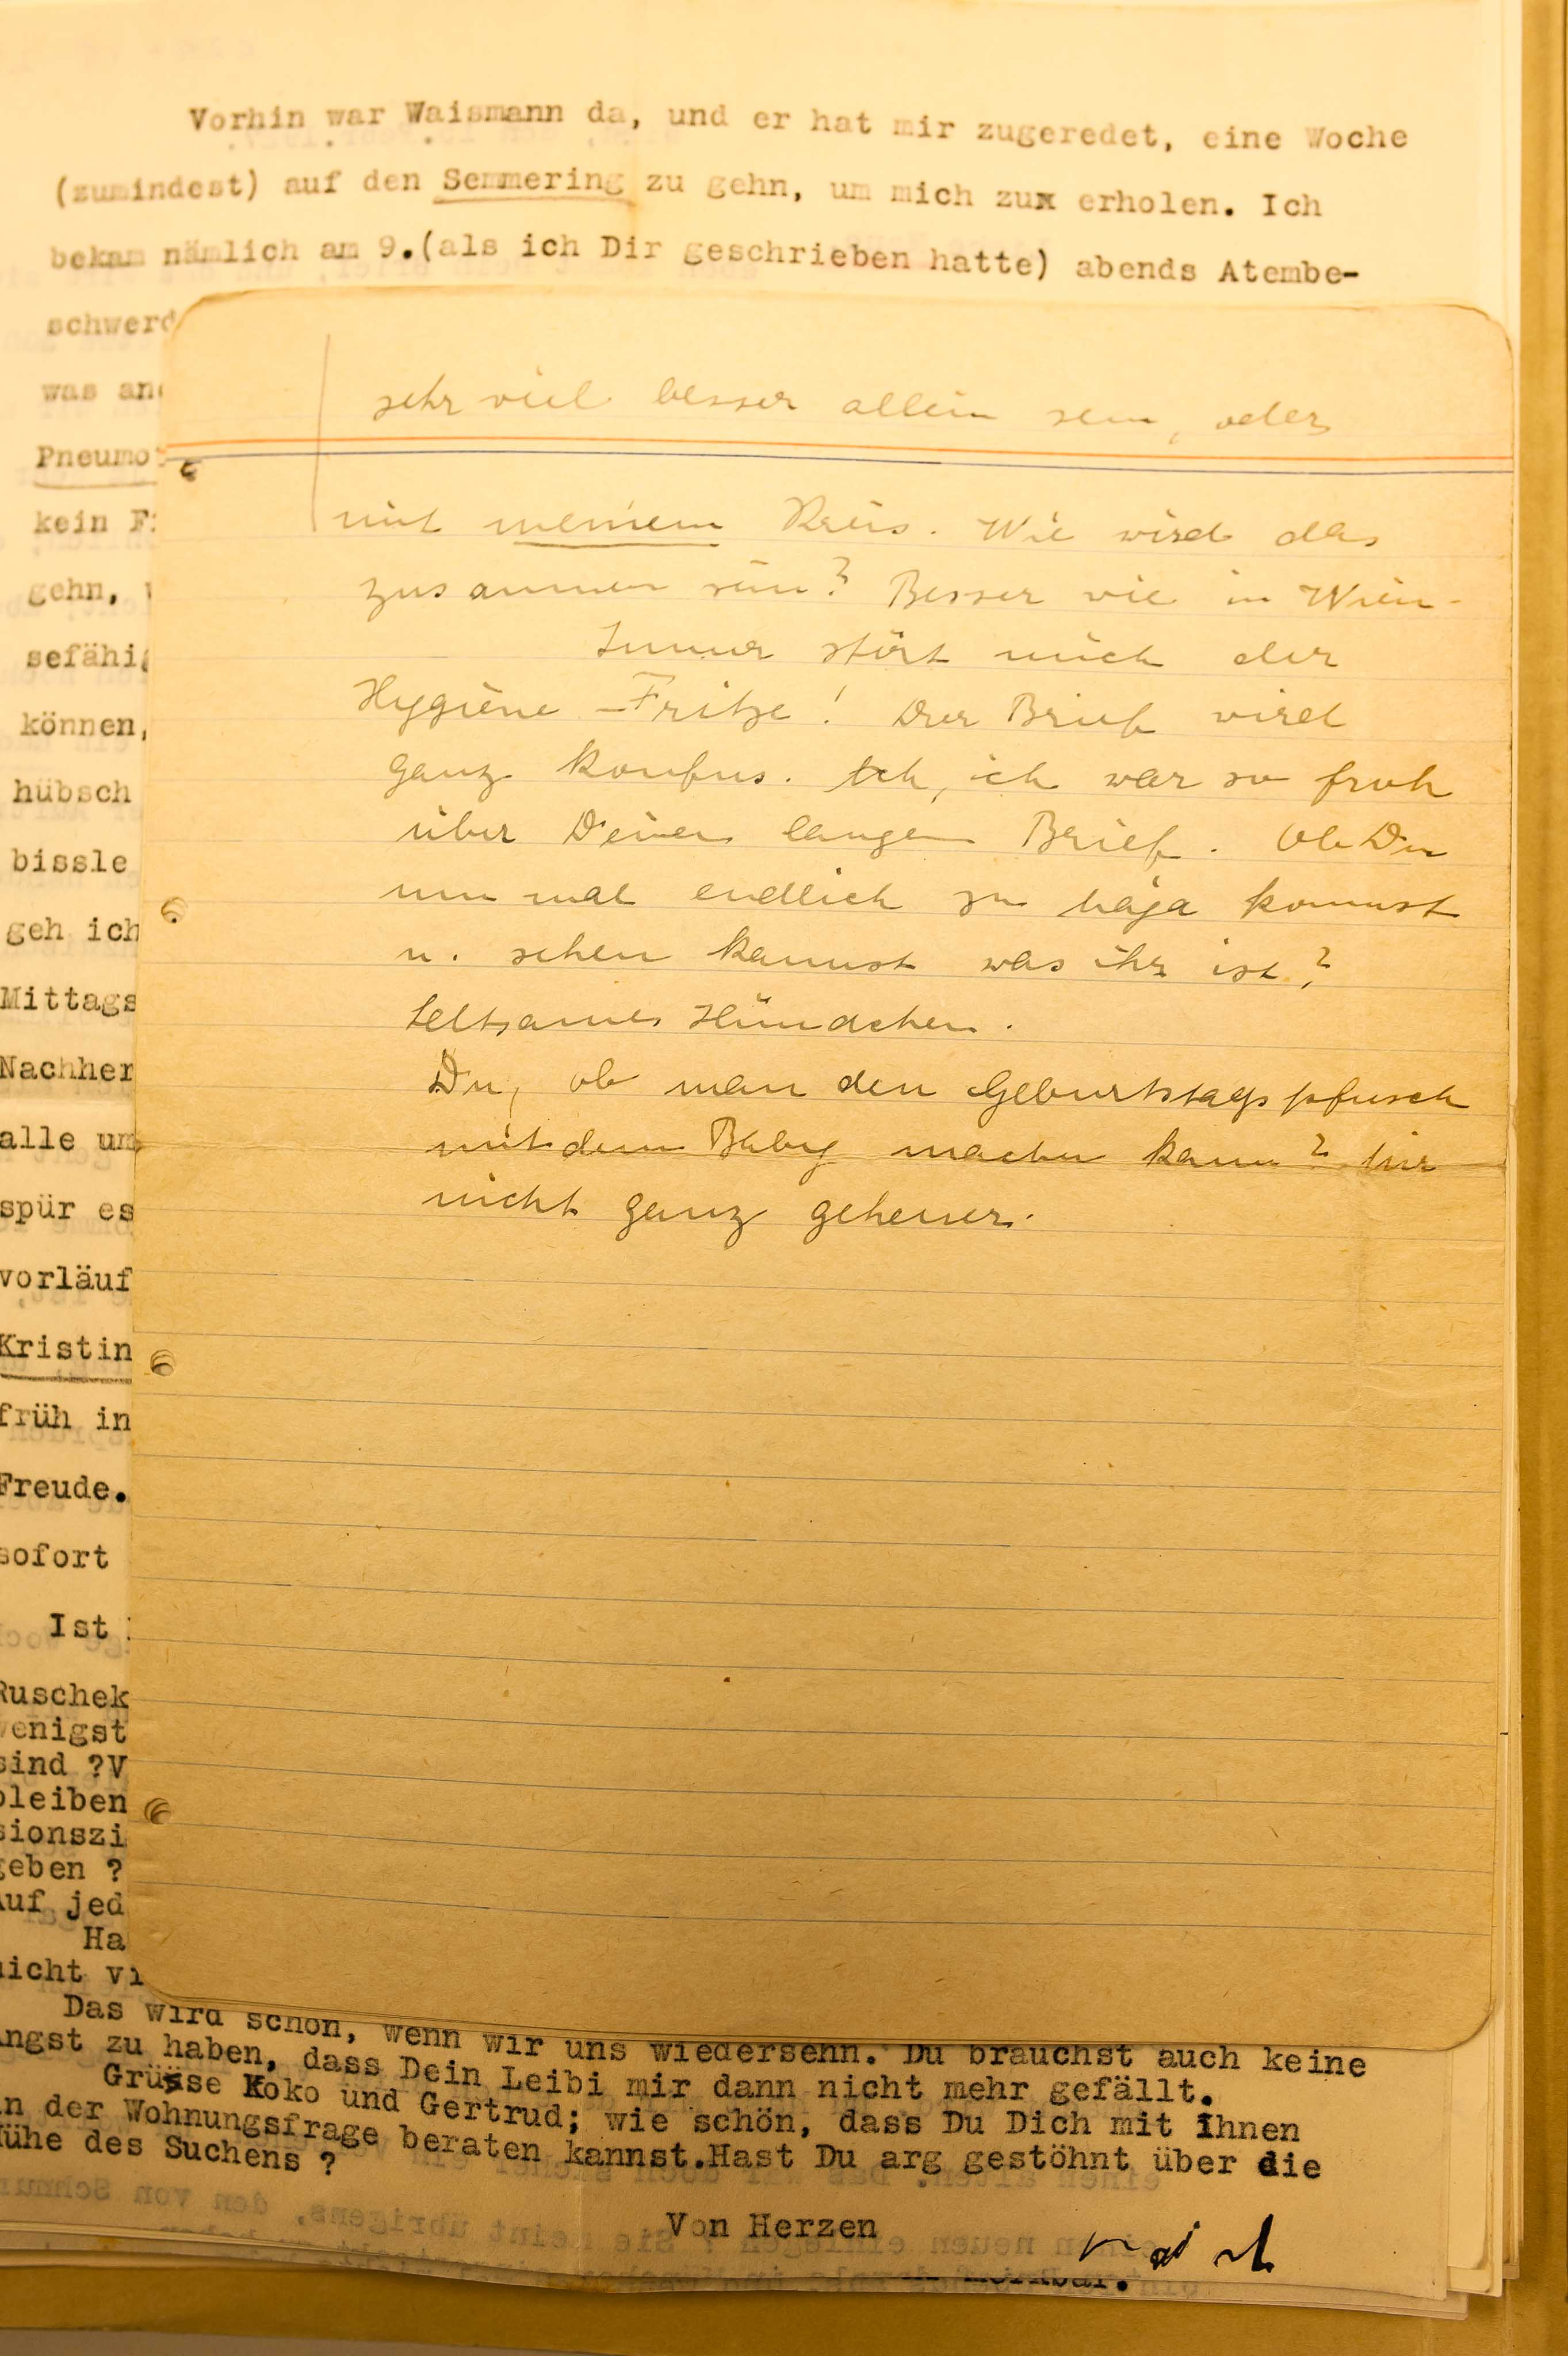 Vorhin war Waismann da, und er hat mir zugeredet, eine Woche
(zumindest) auf den Semmering zu gehn, um mich zux erholen. Ich
bekam nämlich am 9.(als ich Dir geschrieben hatte) abends Atembe-
schwerd
was and
Pneumo
kein F
gehn,
sefähig
können,
hübsch
bissle
geh ich
Mittags
Nachher
alle um
spür es
vorläuf
Kristin
früh in
Freude.
sofort
Ist
Ruschek
wenigst
sind ?V
bleiben
sionszi
geben ?
Auf jed
Ha
nicht vi
sehr viel besser allein sein, oder
mit meinem Kreis. Wie wird das
zusammen sein? Besser wie in Wien.
Immer stört mich der
Hygiene-Fritze! Der Brief wird
ganz konfus. Ach, ich war so froh
über Deinen langen Brief. Ob Du
nun mal endlich zu kommst
u. sehen kannst was ihr ist?
Seltsames Hündchen.
Du, ob man den Geburtstagspfusch
mit dem Baby machen kann? Mir
nicht ganz geheuer.
Das wird schön, wenn wir uns wiedersehn. Du brauchst auch keine
Angst zu haben, dass Dein Leibi mir dann nicht mehr gefällt.
Grüsse Koko und Gertrud; wie schön, dass Du Dich mit Ihnen
in der Wohnungsfrage beraten kannst.Hast Du arg gestöhnt über die
Mühe des Suchens ?
Von Herzen